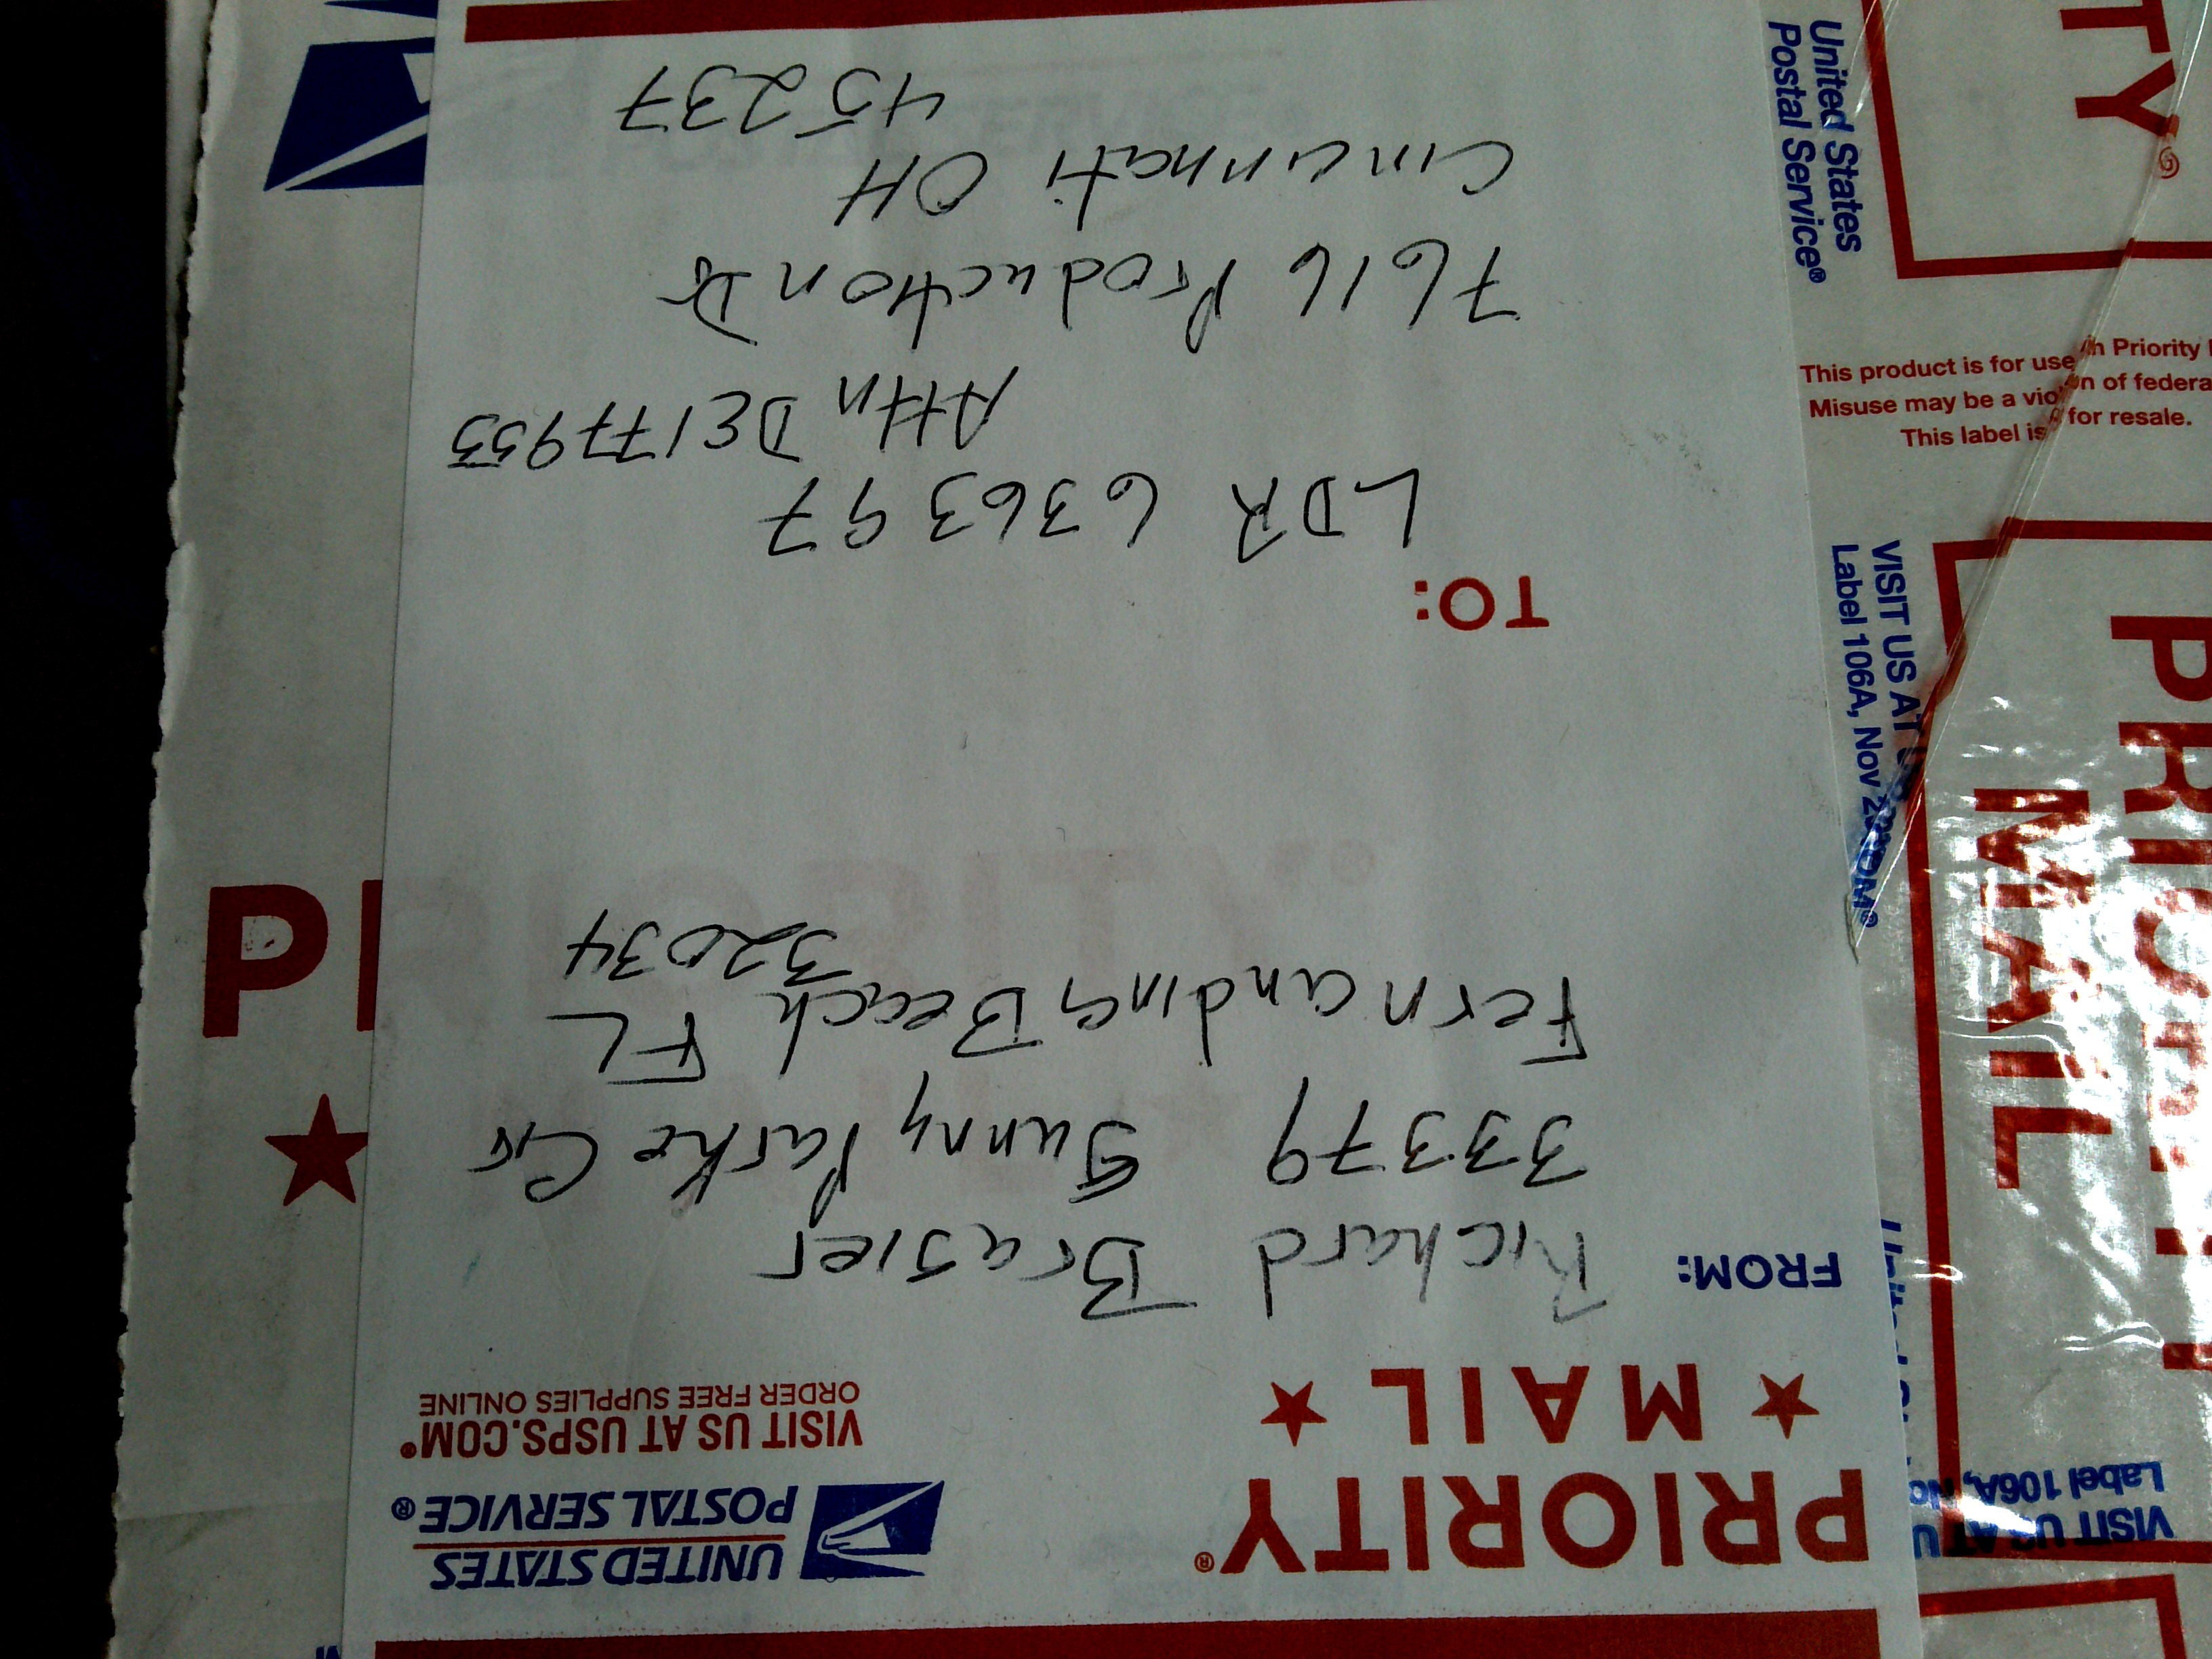 PRIORITY®
★ MAIL ★
UNITED STATES
POSTAL SERVICE®
VISIT US AT USPS.COM®
ORDER FREE SUPPLIES ONLINE
FROM:
Richard Brasier
33379 Sunny Parke Cir
Fernandina Beach FL
32034
TO:
LDR 636397
Attn DE177953
7616 Production Dr
Cincinnati OH
45237
United States
Postal Service®
This product is for use
Priority
Misuse may be a
of federa
This label is
for resale.
VISIT US AT
Label 106A, Nov
PRIORITY
MAIL
TY®
VISIT US AT U
Label 106A, No
P